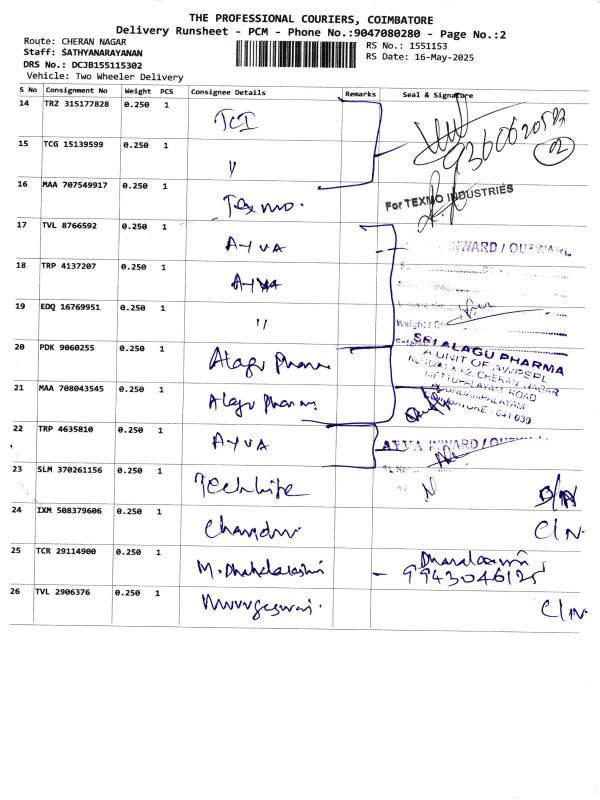 THE PROFESSIONAL COURIERS, COIMBATORE
Delivery Runsheet - PCM - Phone No.:9047080280 - Page No.:2
Route: CHERAN NAGAR
Staff: SATHYANARAYANAN
DRS No.: DCJB155115302
Vehicle: Two Wheeler Delivery
RS No.: 1551153
RS Date: 16-May-2025
S No Consignment No Weight PCS Consignee Details Remarks Seal & Signature
14 TRZ 315177828 0.250 1 TCI
15 TCG 15139599 0.250 1 "
02
16 MAA 707549917 0.250 1 Texmo.
For TEXMO INDUSTRIES
17 TVL 8766592 0.250 1 AYVA
INWARD / OUTWARD
18 TRP 4137207 0.250 1 AYVA
19 EDQ 16769951 0.250 1 "
20 PDK 9060255 0.250 1 Alagu Pharma
SRI ALAGU PHARMA
A UNIT OF
CHERAN NAGAR
METTUPALAYAM ROAD
COIMBATORE - 641 030
21 MAA 708043545 0.250 1 Alagu Pharma
22 TRP 4635810 0.250 1 AYVA
AYVA INWARD /
23 SLM 370261156 0.250 1
24 IXM 508379606 0.250 1 C/N.
25 TCR 29114900 0.250 1
9943046125
26 TVL 2906376 0.250 1 C/N.